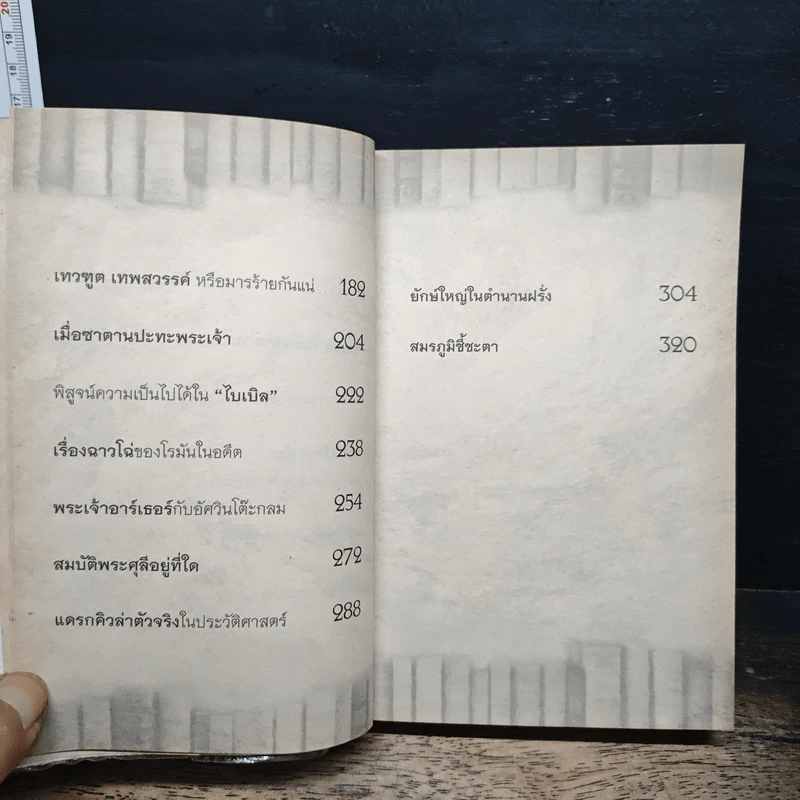 20
19
18
17
เทวฑูต เทพสวรรค์ หรือมารร้ายกันแน่ 182
เมื่อซาตานปะทะพระเจ้า 204
พิสูจน์ความเป็นไปได้ใน “ไบเบิล” 222
เรื่องฉาวโฉ่ของโรมันในอดีต 238
พระเจ้าอาร์เธอร์กับอัศวินโต๊ะกลม 254
สมบัติพระศุลีอยู่ที่ใด 272
แดรกคิวล่าตัวจริงในประวัติศาสตร์ 288
ยักษ์ใหญ่ในตำนานฝรั่ง 304
สมรภูมิชี้ชะตา 320